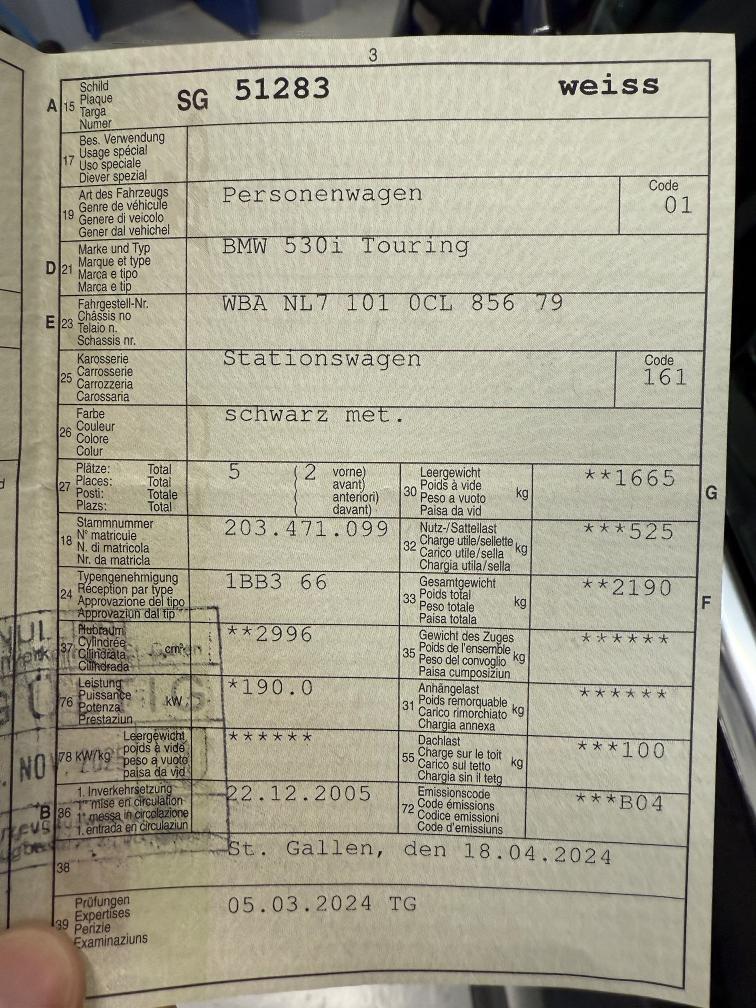 3
A 15 Schild Plaque Targa Numer SG 51283 weiss
17 Bes. Verwendung Usage spécial Uso speciale Diever spezial
19 Art des Fahrzeugs Genre de véhicule Genere di veicolo Gener dal vehichel Personenwagen Code 01
D 21 Marke und Typ Marque et type Marca e tipo Marca e tip BMW 530i Touring
E 23 Fahrgestell-Nr. Châssis no Telaio n. Schassis nr. WBA NL7 101 0CL 856 79
25 Karosserie Carrosserie Carrozzeria Carossaria Stationswagen Code 161
26 Farbe Couleur Colore Colur schwarz met.
27 Plätze: Total Places: Total Posti: Totale Plazs: Total 5 ( 2 vorne) ( avant) ( anteriori) ( davant)
30 Leergewicht Poids à vide Peso a vuoto Paisa da vid kg **1665 G
18 Stammnummer N° matricule N. di matricola Nr. da matricla 203.471.099
32 Nutz-/Sattellast Charge utile/sellette Carico utile/sella Chargia utila/sella kg ***525
24 Typengenehmigung Réception par type Approvazione del tipo Approvaziun dal tip 1BB3 66
33 Gesamtgewicht Poids total Peso totale Paisa totala kg **2190 F
37 Hubraum Cylindrée Cilindrata Cilindrada cm³ **2996
35 Gewicht des Zuges Poids de l'ensemble Peso del convoglio Paisa cumposiziun kg ******
76 Leistung Puissance Potenza Prestaziun kW *190.0
31 Anhängelast Poids remorquable Carico rimorchiato Chargia annexa kg ******
78 kW/kg Leergewicht poids à vide peso a vuoto paisa da vid ******
55 Dachlast Charge sur le toit Carico sul tetto Chargia sin il tetg kg ***100
B 36 1. Inverkehrsetzung 1re mise en circulation 1a messa in circolazione 1. entrada en circulaziun 22.12.2005
72 Emissionscode Code émissions Codice emissioni Code d'emissiuns ***B04
38 St. Gallen, den 18.04.2024
39 Prüfungen Expertises Perizie Examinaziuns 05.03.2024 TG
NOV